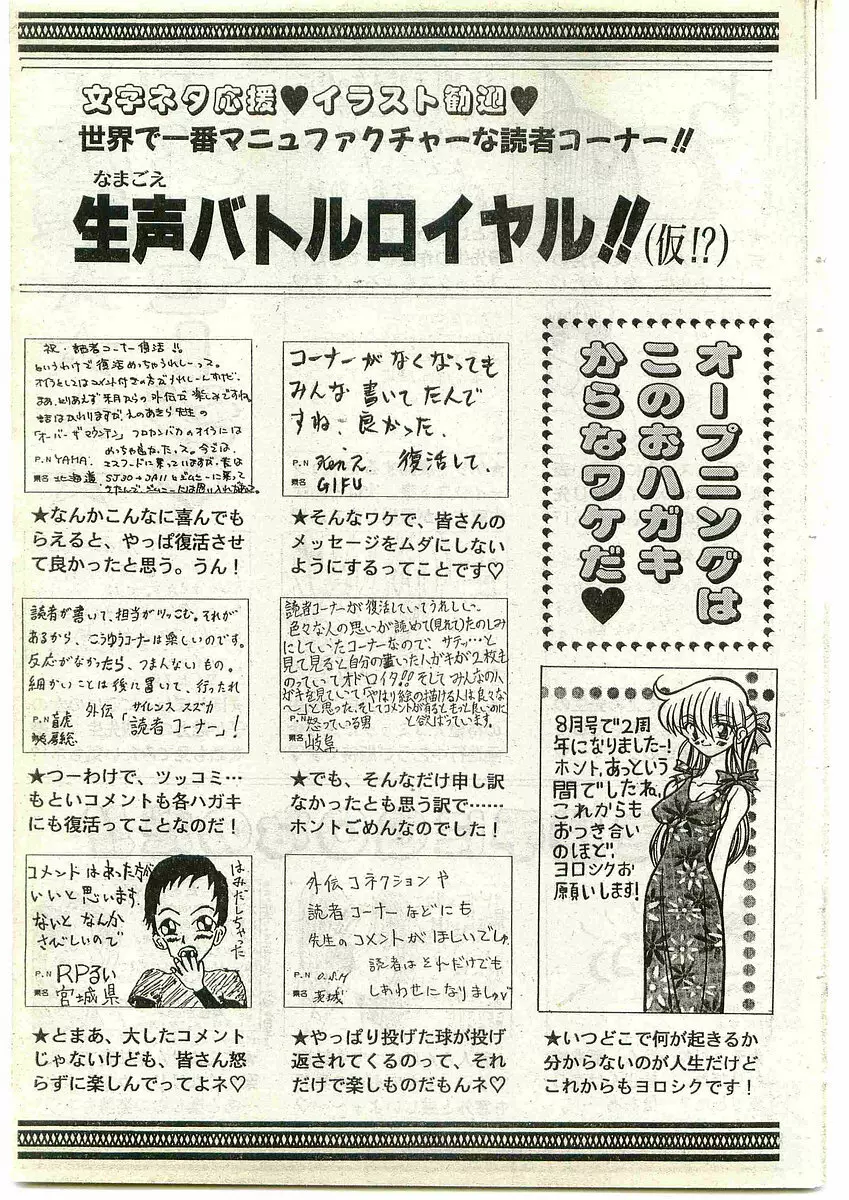 文字ネタ応援♥イラスト歓迎♥
世界で一番マニュファクチャーな読者コーナー!!
なまごえ
生声バトルロイヤル!!(仮!?)
オープニングは
このおハガキ
からなワケだ♥
コーナーがなくなっても
みんな書いてたんで
すね、良かった、
復活して、
P.N
県名 GIFU
★そんなワケで、皆さんの
メッセージをムダにしない
ようにするってことです♡
祝・読者コーナー復活!!
というわけで復活めっちゃうれしーっス。
オイラとしてはコメント付きの方がうれしーんすけど、
まあ、とりあえず来月からの外伝で楽しみですね
P.N YAMA.
県名 北海道
★なんかこんなに喜んでも
らえると、やっぱ復活させ
て良かったと思う。うん!
読者コーナーが復活していてうれしい〜。
色々な人の思いが読めて(見れて)たのしみ
にしていたコーナーなので、サテッ…と
見て見ると自分の書いた人がキが2枚も
のっていてオドロイタ!!そしてみんなの人
がキを見ていて「やはり絵の描ける人は良々な
〜」と思った、そしてコメントが有るともっと良いのに
と欲ばっています。
P.N 怒っている男
県名 岐阜
★でも、そんなだけ申し訳
なかったとも思う訳で……
ホントごめんなのでした!
読者が書いて、担当がツッこむ。それが
あるから、こうゆうコーナーは楽しいのです。
反応がなかったら、つまんないもの。
細かいことは後に置いて、行ったれ
外伝 サイレンス スズカ
「読者コーナー」!
P.N 盲虎
★つーわけで、ツッコミ…
もといコメントも各ハガキ
にも復活ってことなのだ!
8月号で2周
年になりました–!
ホント、あっという
間でしたね。
これからも
おつき合い
のほど、
ヨロシクお
願いします!
★いつどこで何が起きるか
分からないのが人生だけど
これからもヨロシクです!
外伝コネクションや
読者コーナーなどにも
先生のコメントがほしいでしゅ
読者はそれだけでも
しあわせになりましゅ
P.N O.S.M
県名 茨城
★やっぱり投げた球が投げ
返されてくるのって、それ
だけで楽しものだもんネ♡
コメントはあった方が
いいと思います。
ないとなんか
さびしいので
はみだしちゃった
P.N RPるい
県名 宮城県
★とまあ、大したコメント
じゃないけども、皆さん怒
らずに楽しんでってよネ♡